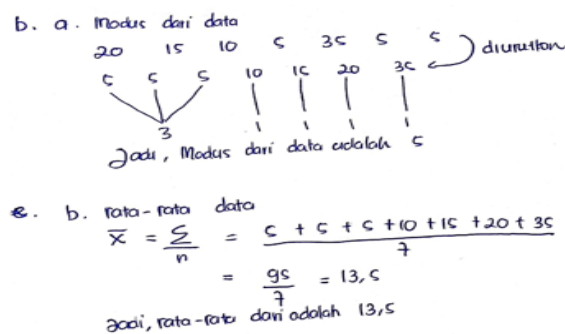 b. a. Modus dari data
20 15 10 5 35 5 5
diurutkan
5 5 5 10 15 20 35
3 1 1 1 1
Jadi, Modus dari data adalah 5
c. b. rata-rata data
x̄ = Σ/n = 5 + 5 + 5 + 10 + 15 + 20 + 35 / 7
= 95/7 = 13,5
Jadi, rata-rata dari adalah 13,5